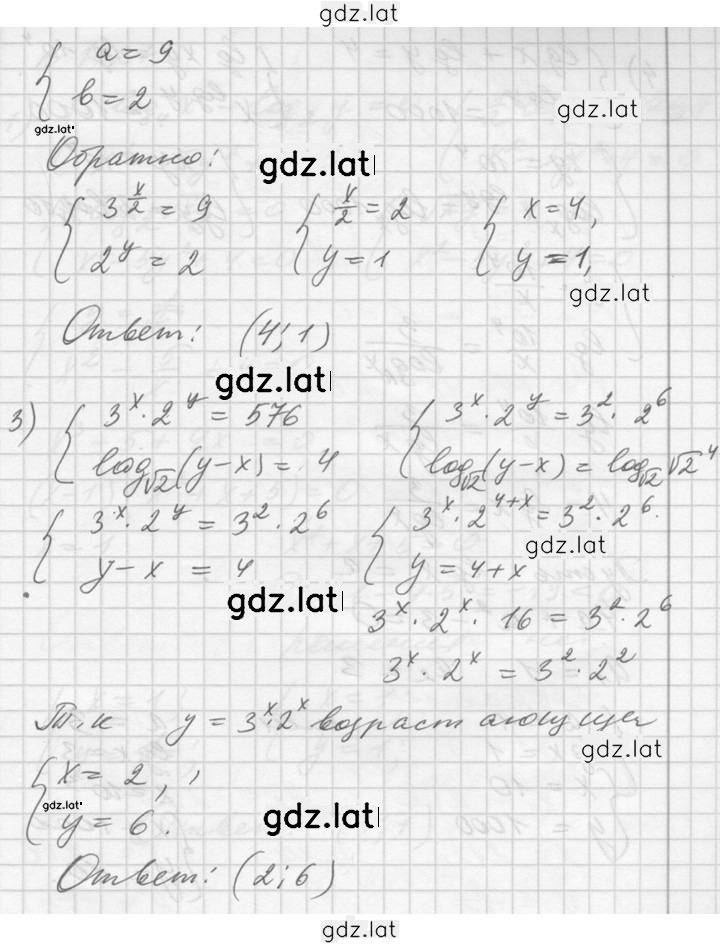 gdz.lat
{ a = 9
b = 2
gdz.lat
gdz.lat
Обратно:
gdz.lat
{ 3^(x/2) = 9 { x/2 = 2 { x = 4,
2^y = 2 y = 1 y = 1,
gdz.lat
Ответ: (4; 1)
gdz.lat
3) { 3^x · 2^y = 576 { 3^x · 2^y = 3^2 · 2^6
log_√2 (y-x) = 4 log_√2 (y-x) = log_√2 √2^4
{ 3^x · 2^y = 3^2 · 2^6 { 3^x · 2^(4+x) = 3^2 · 2^6.
gdz.lat
y - x = 4 y = 4+x
gdz.lat
3^x · 2^x · 16 = 3^2 · 2^6
3^x · 2^x = 3^2 · 2^2
Т.к y = 3^x · 2^x возрастающая
gdz.lat
{ x = 2,
gdz.lat
y = 6.
gdz.lat
Ответ: (2; 6)
gdz.lat